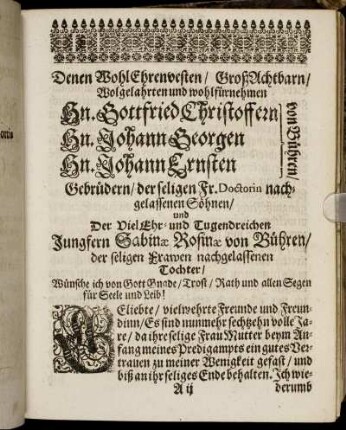 Denen WohlEhrenvesten / GroßAchtbarn /
Wolgelahrten und wohlfürnehmen
Hn. Gottfried Christoffern
Hn. Johann Georgen
Hn. Johann Ernsten
von Bühren /
Gebrüdern / der seligen Fr. Doctorin nach-
gelassenen Söhnen /
und
Der VielEhr- und Tugendreichen
Jungfern Sabinæ Rosinæ von Bühren /
der seligen Frawen nachgelassenen
Tochter /
Wünsche ich von Gott Gnade / Trost / Rath und allen Segen
für Seele und Leib!
GEliebte / vielwehrte Freunde und Freun-
dinn / Es sind nunmehr sechtzehn volle Ja-
re / da ihre selige Frau Mutter beym An-
fang meines Predigampts ein gutes Ver-
trauen zu meiner Wenigkeit gefast / und
biß an ihr seliges Ende behalten. Ich wie-
A ij derumb